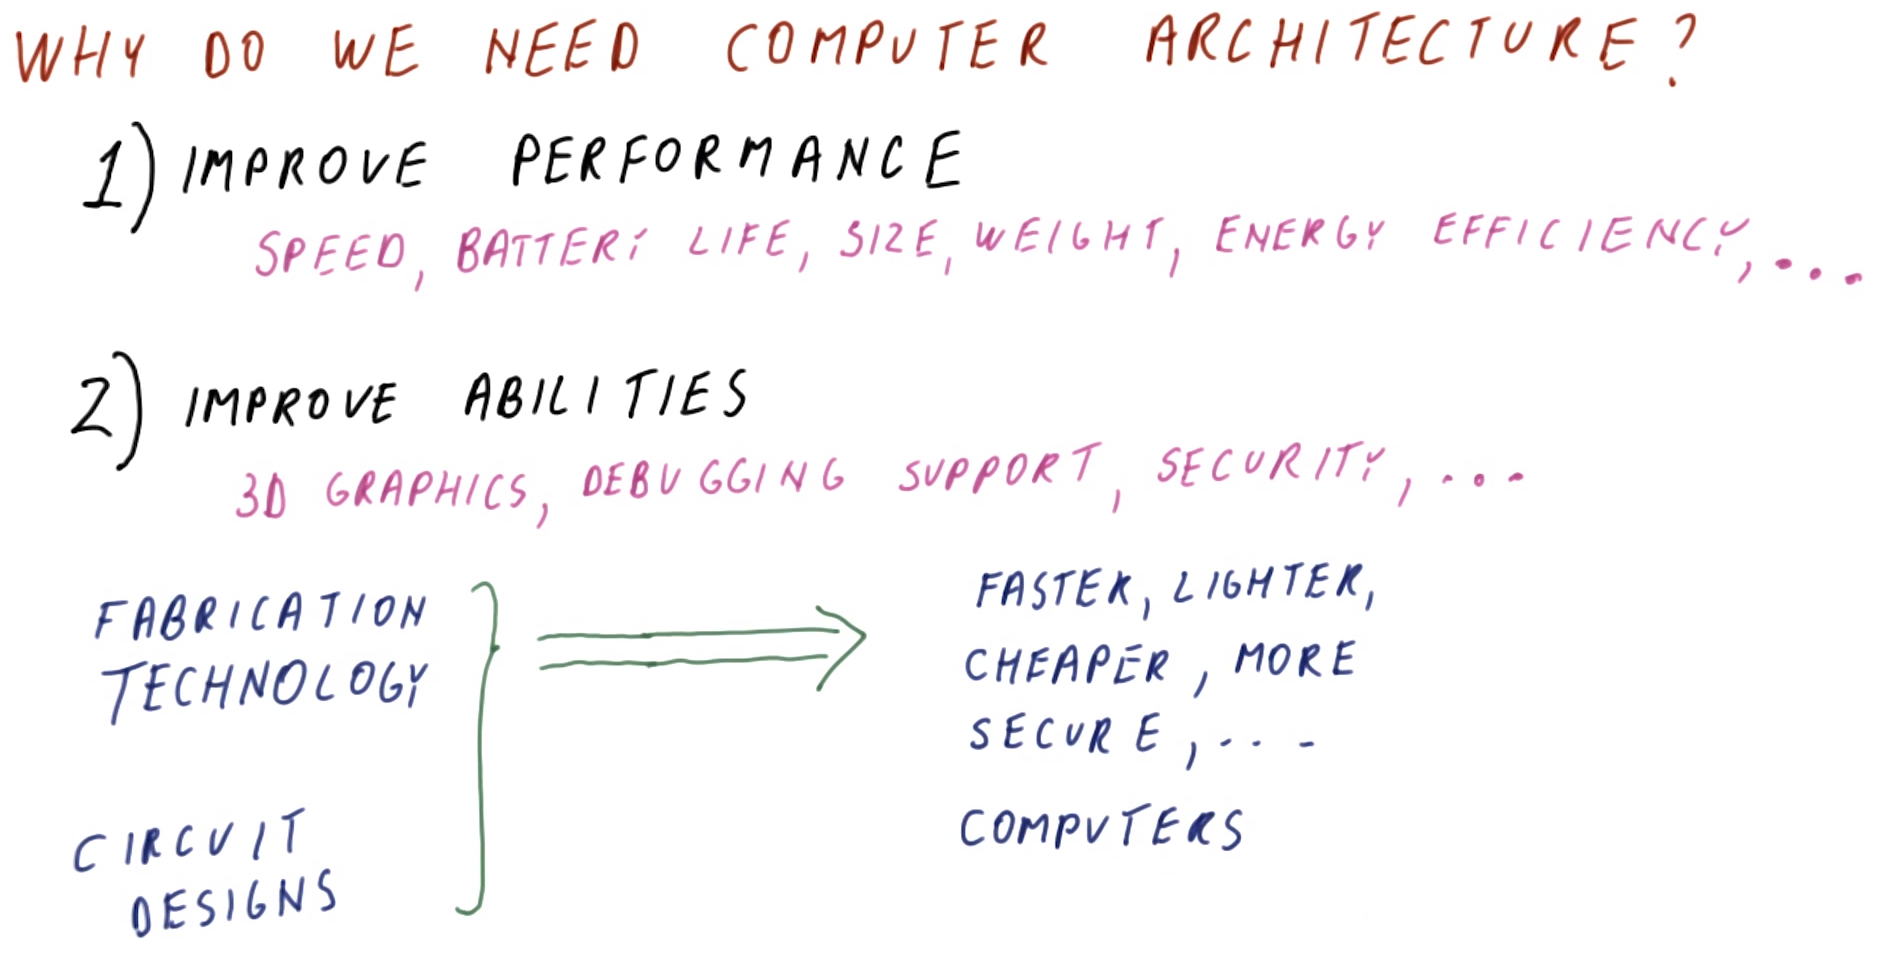 WHY DO WE NEED COMPUTER ARCHITECTURE?
1) IMPROVE PERFORMANCE
SPEED, BATTERY LIFE, SIZE, WEIGHT, ENERGY EFFICIENCY, ...
2) IMPROVE ABILITIES
3D GRAPHICS, DEBUGGING SUPPORT, SECURITY, ...
FABRICATION
TECHNOLOGY
CIRCUIT
DESIGNS
FASTER, LIGHTER,
CHEAPER, MORE
SECURE, ...
COMPUTERS